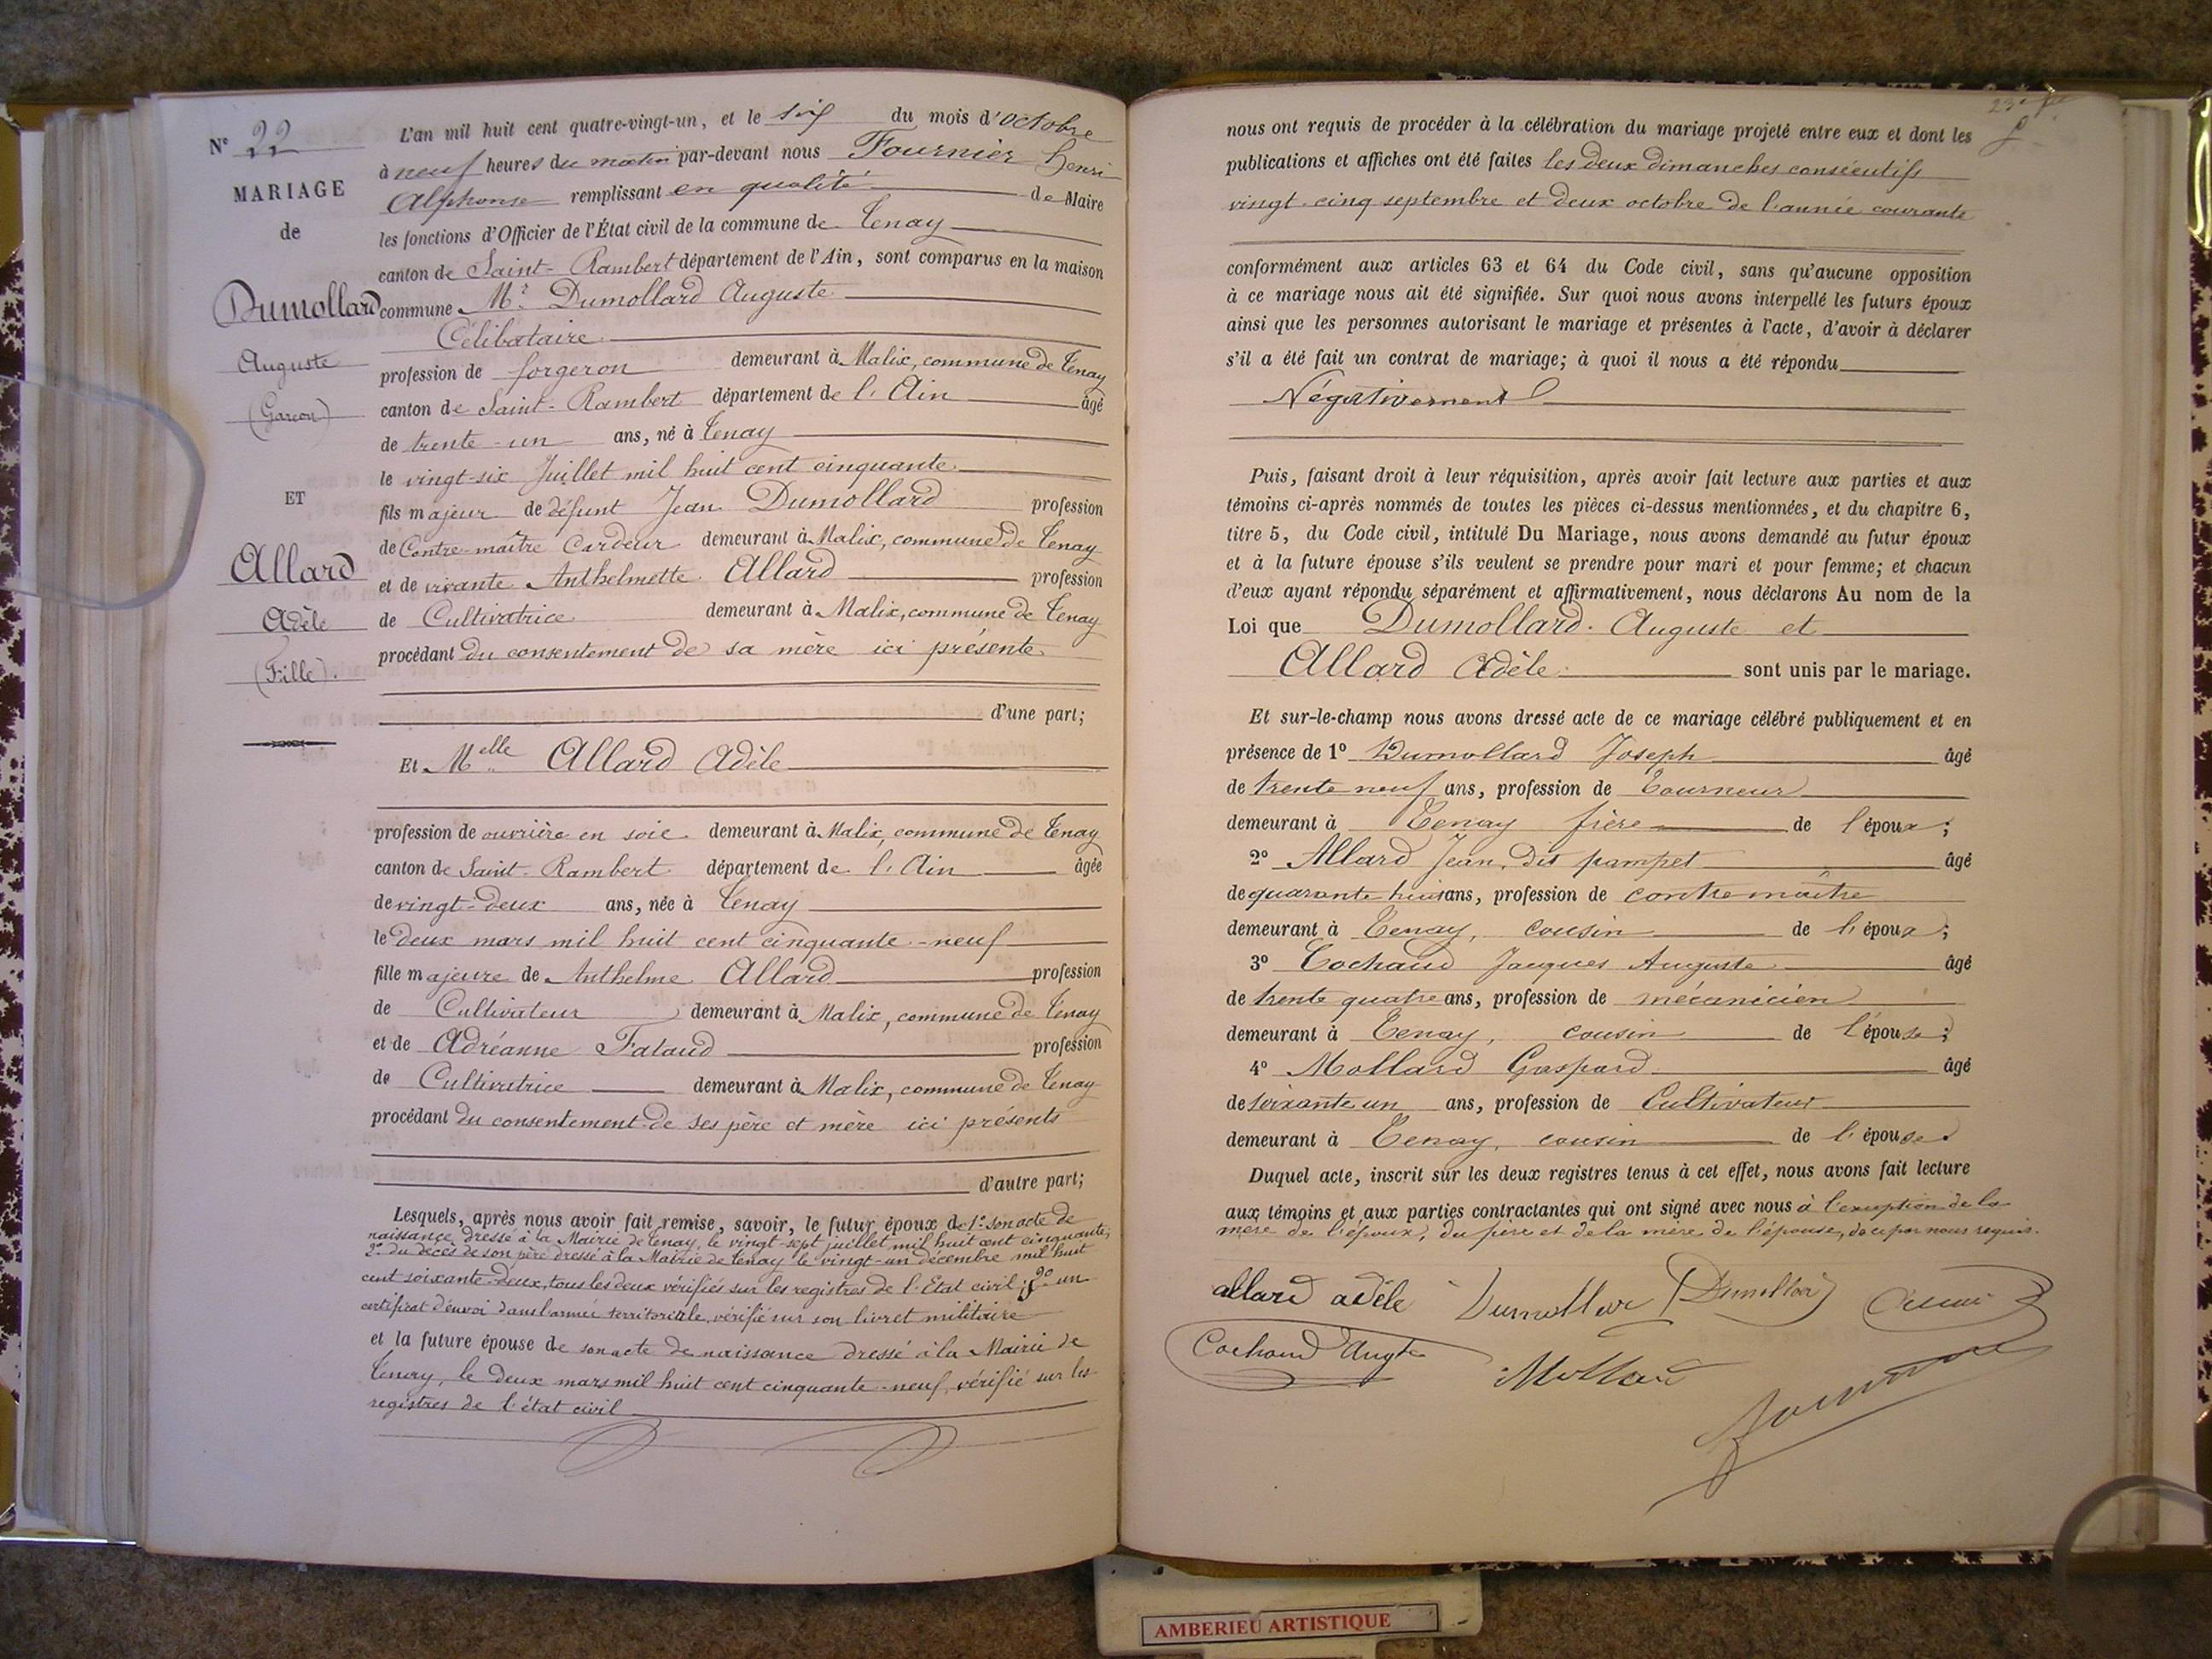 N° 22
MARIAGE
de
Dumollard
Auguste
(Garçon)
ET
Allard
Adèle
(Fille).
L'an mil huit cent quatre-vingt-un, et le six du mois d'octobre
à neuf heures du matin par-devant nous Fournier Henri
Alphonse remplissant en qualité de Maire
les fonctions d'Officier de l'État civil de la commune de Tenay
canton de Saint-Rambert département de l'Ain, sont comparus en la maison
commune Mr. Dumollard Auguste
Célibataire.
profession de forgeron demeurant à Malix, commune de Tenay
canton de Saint-Rambert département de l'Ain âgé
de trente-un ans, né à Tenay
le vingt-six Juillet mil huit cent cinquante.
fils majeur de défunt Jean Dumollard profession
de Contre-maître Cardeur demeurant à Malix, commune de Tenay
et de vivante Anthelmette Allard profession
de Cultivatrice demeurant à Malix, commune de Tenay
procédant du consentement de sa mère ici présente.
d'une part;
Et Melle Allard Adèle
profession de ouvrière en soie demeurant à Malix, commune de Tenay
canton de Saint-Rambert département de l'Ain âgée
de vingt-deux ans, née à Tenay
le deux mars mil huit cent cinquante-neuf
fille majeure de Anthelme Allard profession
de Cultivateur demeurant à Malix, commune de Tenay
et de Adréanne Falaud profession
de Cultivatrice demeurant à Malix, commune de Tenay
procédant du consentement de ses père et mère ici présents
d'autre part;
Lesquels, après nous avoir fait remise, savoir, le futur époux de 1° son acte de
naissance dressé à la Mairie de Tenay, le vingt-sept juillet mil huit cent cinquante;
2° du décès de son père dressé à la Mairie de Tenay le vingt-un décembre mil huit
cent soixante-deux, tous les deux vérifiés sur les registres de l'Etat civil; 3° un
certificat d'envoi dans l'armée territoriale, vérifié sur son livret militaire
et la future épouse de son acte de naissance dressé à la Mairie de
Tenay, le deux mars mil huit cent cinquante-neuf, vérifié sur les
registres de l'état civil
nous ont requis de procéder à la célébration du mariage projeté entre eux et dont les
publications et affiches ont été faites les deux dimanches consécutifs
vingt-cinq septembre et deux octobre de l'année courante
conformément aux articles 63 et 64 du Code civil, sans qu'aucune opposition
à ce mariage nous ait été signifiée. Sur quoi nous avons interpellé les futurs époux
ainsi que les personnes autorisant le mariage et présentes à l'acte, d'avoir à déclarer
s'il a été fait un contrat de mariage; à quoi il nous a été répondu
Négativement
Puis, faisant droit à leur réquisition, après avoir fait lecture aux parties et aux
témoins ci-après nommés de toutes les pièces ci-dessus mentionnées, et du chapitre 6,
titre 5, du Code civil, intitulé Du Mariage, nous avons demandé au futur époux
et à la future épouse s'ils veulent se prendre pour mari et pour femme; et chacun
d'eux ayant répondu séparément et affirmativement, nous déclarons Au nom de la
Loi que Dumollard Auguste et
Allard Adèle sont unis par le mariage.
Et sur-le-champ nous avons dressé acte de ce mariage célébré publiquement et en
présence de 1° Dumollard Joseph âgé
de trente neuf ans, profession de Tourneur
demeurant à Tenay frère de l'époux;
2° Allard Jean, dit pampet âgé
de quarante huit ans, profession de contremaître
demeurant à Tenay, cousin de l'époux;
3° Cochaud Jacques Auguste âgé
de trente quatre ans, profession de mécanicien
demeurant à Tenay, cousin de l'épouse;
4° Mollard Gaspard âgé
de soixante un ans, profession de Cultivateur
demeurant à Tenay, cousin de l'épouse.
Duquel acte, inscrit sur les deux registres tenus à cet effet, nous avons fait lecture
aux témoins et aux parties contractantes qui ont signé avec nous à l'exception de la
mère de l'époux, du père et de la mère de l'épouse, de ce par nous requis.
allard adèle Dumollar Dumollard
Cochaud Augte Mollard
AMBERIEU ARTISTIQUE